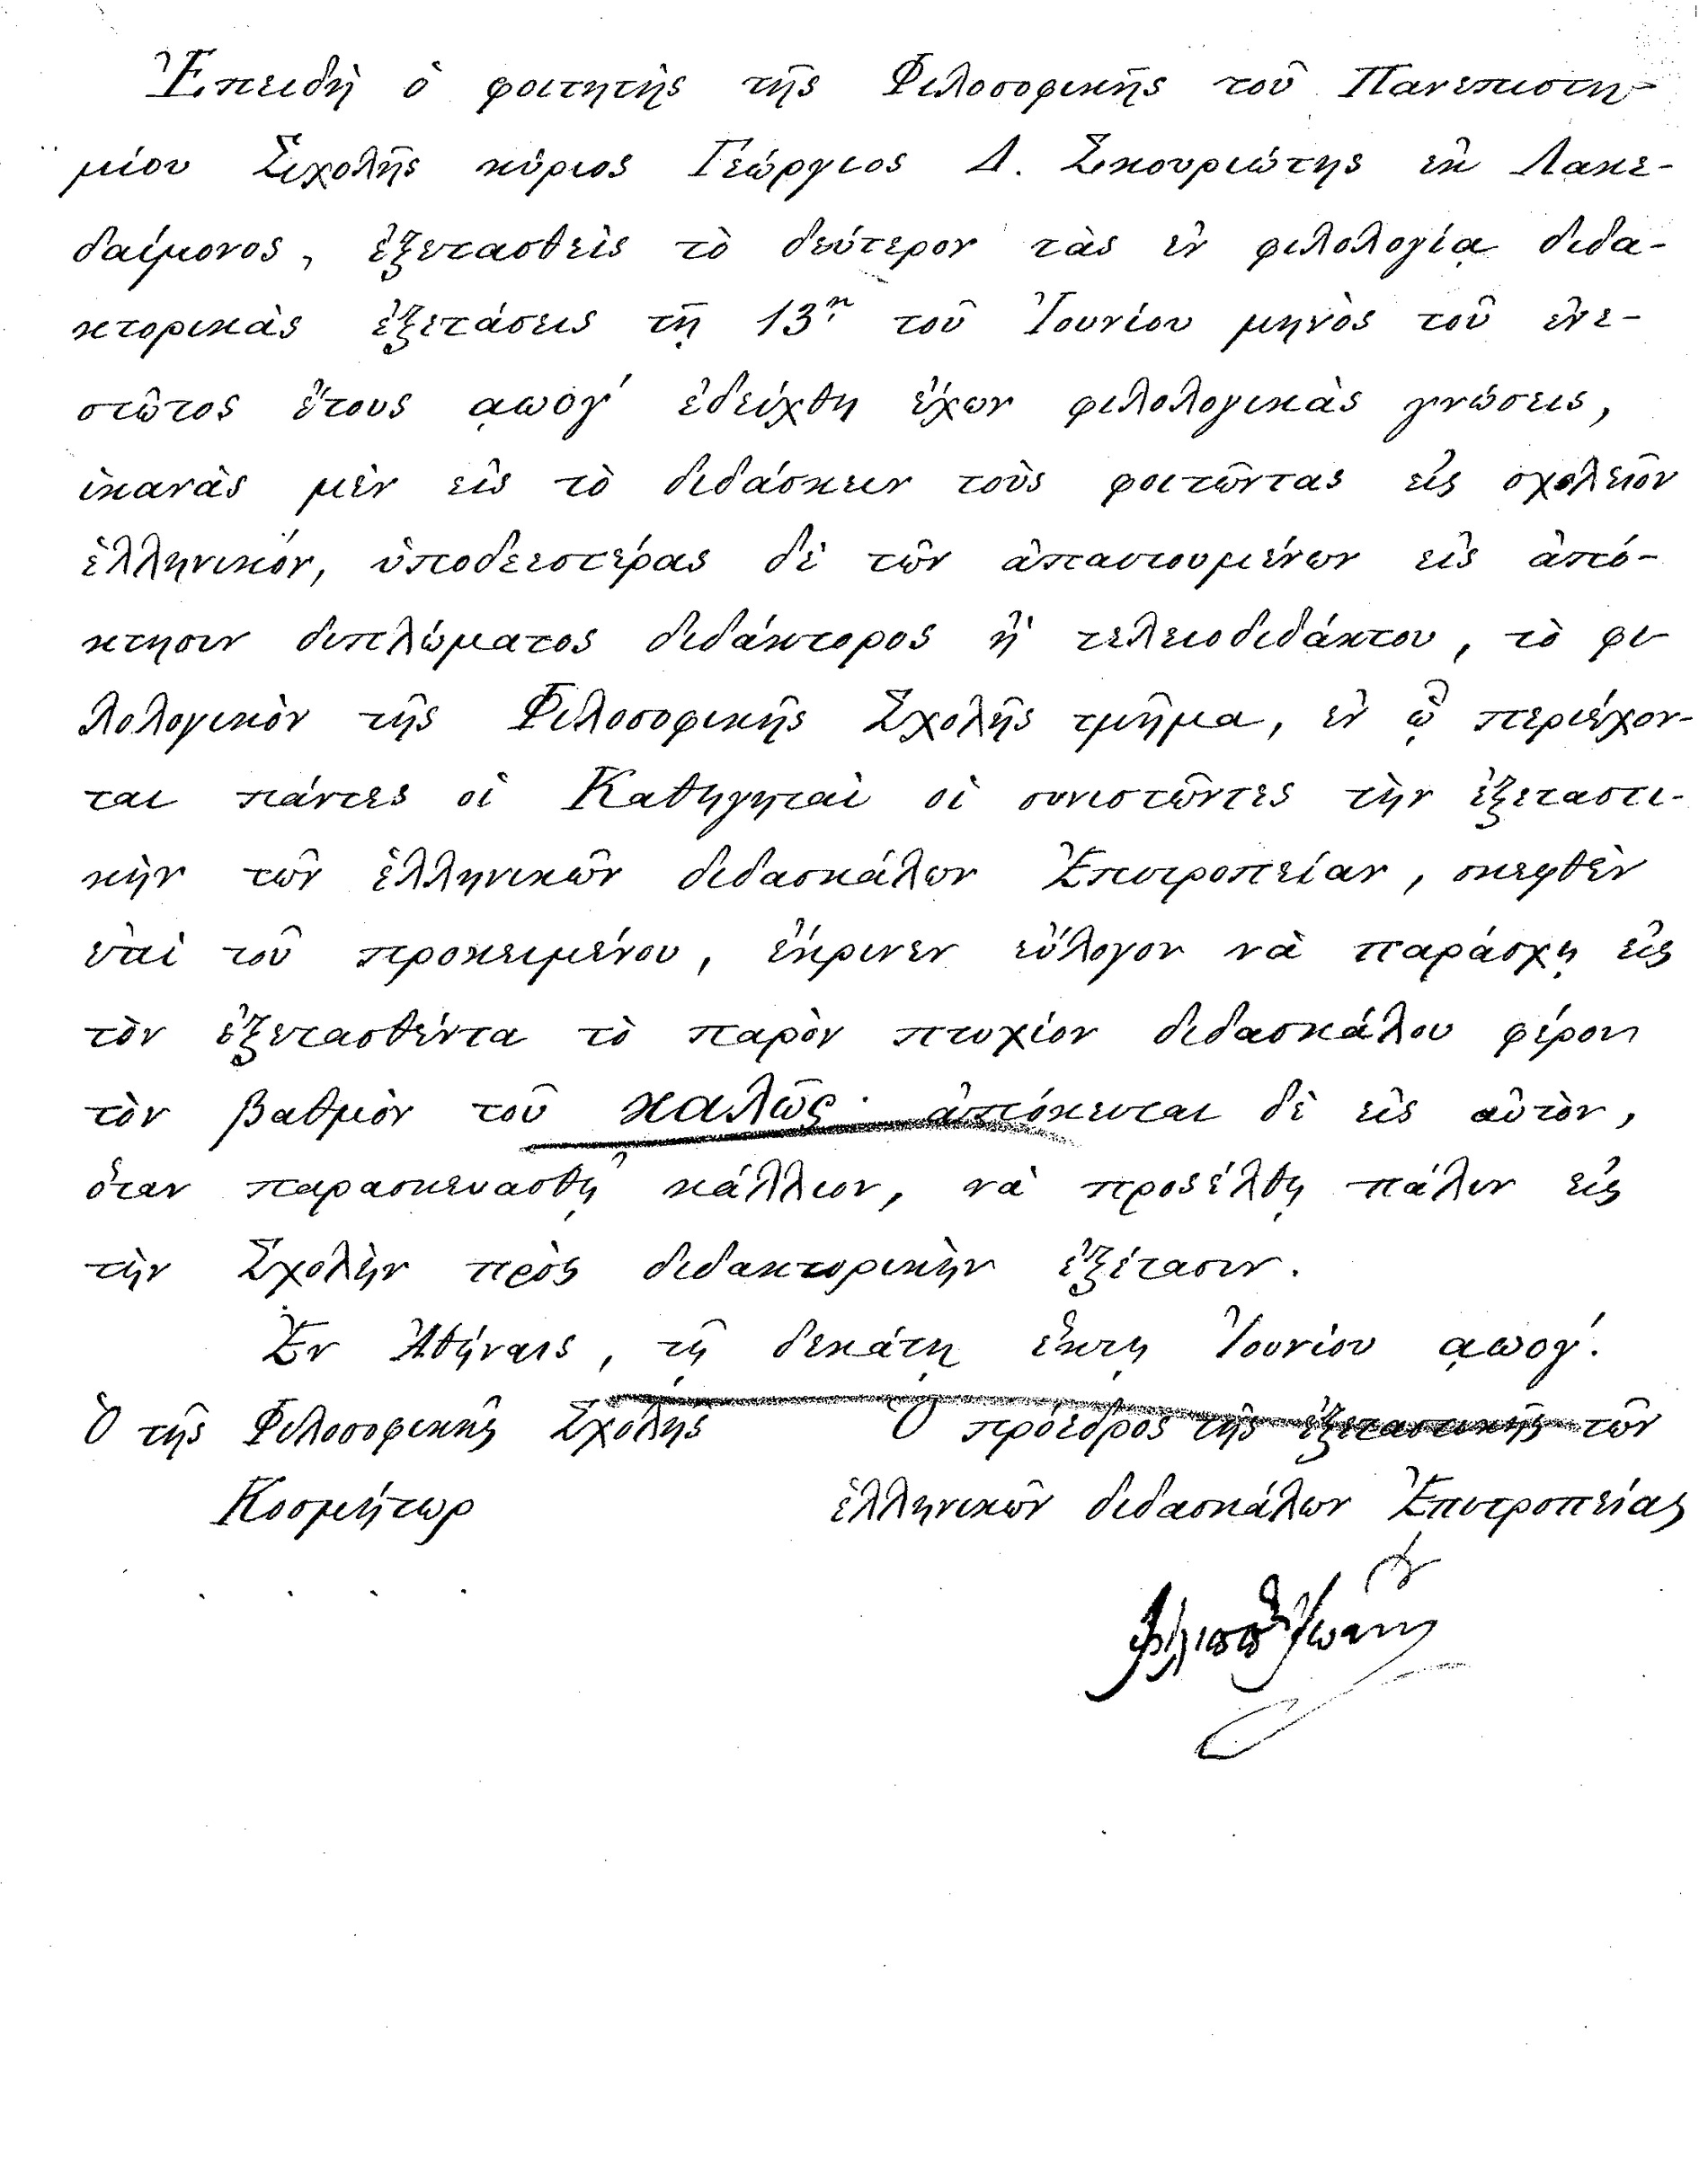 Ἐπειδὴ ὁ φοιτητὴς τῆς Φιλοσοφικῆς τοῦ Πανεπιστη-
μίου Σχολῆς κύριος Γεώργιος Δ. Σκουριώτης ἐκ Λακε-
δαίμονος, ἐξετασθεὶς τὸ δεύτερον τὰς ἐν φιλολογίᾳ διδα-
κτορικὰς ἐξετάσεις τῇ 13ῃ τοῦ Ἰουνίου μηνὸς τοῦ ἐνε-
στῶτος ἔτους ͵αωογ΄ ἐδείχθη ἔχων φιλολογικὰς γνώσεις,
ἱκανὰς μὲν εἰς τὸ διδάσκειν τοὺς φοιτῶντας εἰς σχολεῖον
ἑλληνικόν, ὑποδεεστέρας δὲ τῶν ἀπαιτουμένων εἰς ἀπό-
κτησιν διπλώματος διδάκτορος ἢ τελειοδιδάκτου, τὸ φι
λολογικὸν τῆς Φιλοσοφικῆς Σχολῆς τμῆμα, ἐν ᾧ περιέχον-
ται πάντες οἱ Καθηγηταὶ οἱ συνιστῶντες τὴν ἐξεταστι-
κὴν τῶν ἑλληνικῶν διδασκάλων Ἐπιτροπείαν, σκεφθὲν
ἐπὶ τοῦ προκειμένου, ἔκρινεν εὔλογον νὰ παράσχῃ εἰς
τὸν ἐξετασθέντα τὸ παρὸν πτυχίον διδασκάλου φέρον
τὸν βαθμὸν τοῦ καλῶς· ἀπόκειται δὲ εἰς αὐτὸν,
ὅταν παρασκευασθῇ κάλλιον, νὰ προσέλθῃ πάλιν εἰς
τὴν Σχολὴν πρὸς διδακτορικὴν ἐξέτασιν.
Ἐν Ἀθήναις, τῇ δεκάτῃ ἕκτῃ Ἰουνίου ͵αωογ΄.
Ὁ τῆς Φιλοσοφικῆς Σχολῆς Ὁ πρόεδρος τῆς ἐξεταστικῆς τῶν
Κοσμήτωρ ἑλληνικῶν διδασκάλων Ἐπιτροπείας
. . . .
Φίλιππος Ἰωάννου